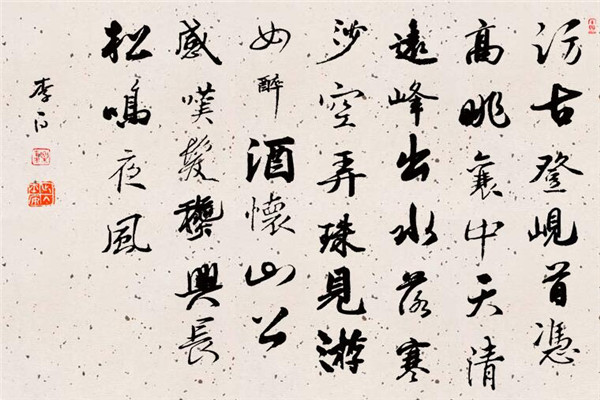 訪古登峴首憑
高眺襄中天清
遠峰出水落寒
沙空弄珠見游
女醉酒懷山公
感嘆發龝興長
松鳴夜風
李白